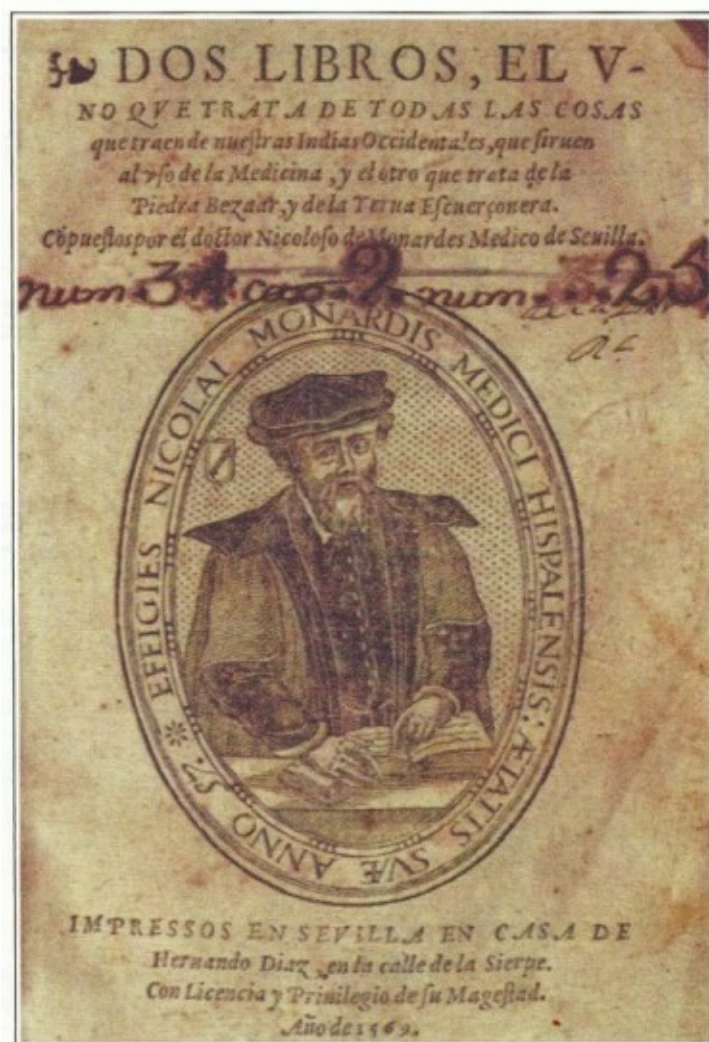 DOS LIBROS, EL V-
NO QVE TRATA DE TODAS LAS COSAS
que traen de nueſtras Indias Occidentales, que ſiruen
al vſo de la Medicina, y el otro que trata de la
Piedra Bezaar, y de la Yerua Eſcuerçonera.
Cõpueſtos por el doctor Nicoloſo de Monardes Medico de Seuilla.
num. 34 cax. 9. num. 25
EFFIGIES NICOLAI MONARDIS MEDICI HISPALENSIS: ÆTATIS SVÆ ANNO 57.
IMPRESSOS EN SEVILLA EN CASA DE
Hernando Diaz, en la calle de la Sierpe.
Con Licencia y Priuilegio de ſu Mageſtad.
Año de 1569.